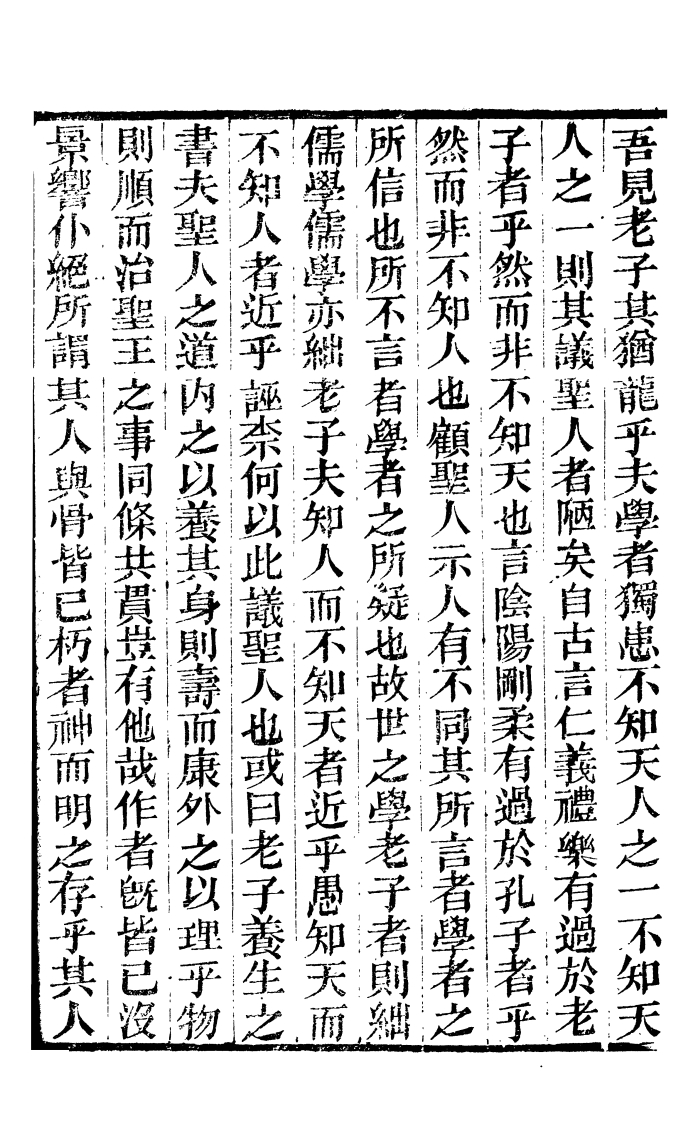 吾見老子其猶龍乎夫學者獨患不知天人之一不知天
人之一則其議聖人者陋矣自古言仁義禮樂有過於老
子者乎然而非不知天也言陰陽剛柔有過於孔子者乎
然而非不知人也顧聖人示人有不同其所言者學者之
所信也所不言者學者之所疑也故世之學老子者則絀
儒學儒學亦絀老子夫知人而不知天者近乎愚知天而
不知人者近乎誣柰何以此議聖人也或曰老子養生之
書夫聖人之道内之以養其身則壽而康外之以理乎物
則順而治聖王之事同條共貫豈有他哉作者旣皆已沒
景響仆絕所謂其人與骨皆已朽者神而明之存乎其人